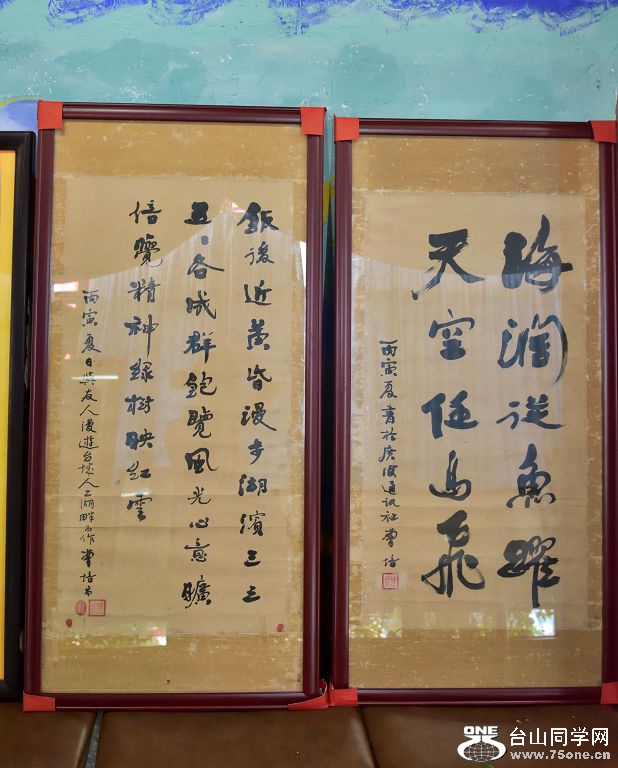 海濶從魚躍
天空任鳥飛
丙寅夏書於廣海通訊社曹培
飯後近黃昏漫步湖濱三三
五〻各成群飽覽風光心意曠
倍覺精神綠樹映紅雲
丙寅夏日與友人漫遊台城人工湖畔而作 曹培
ONE 台山同学网
www.75one.cn